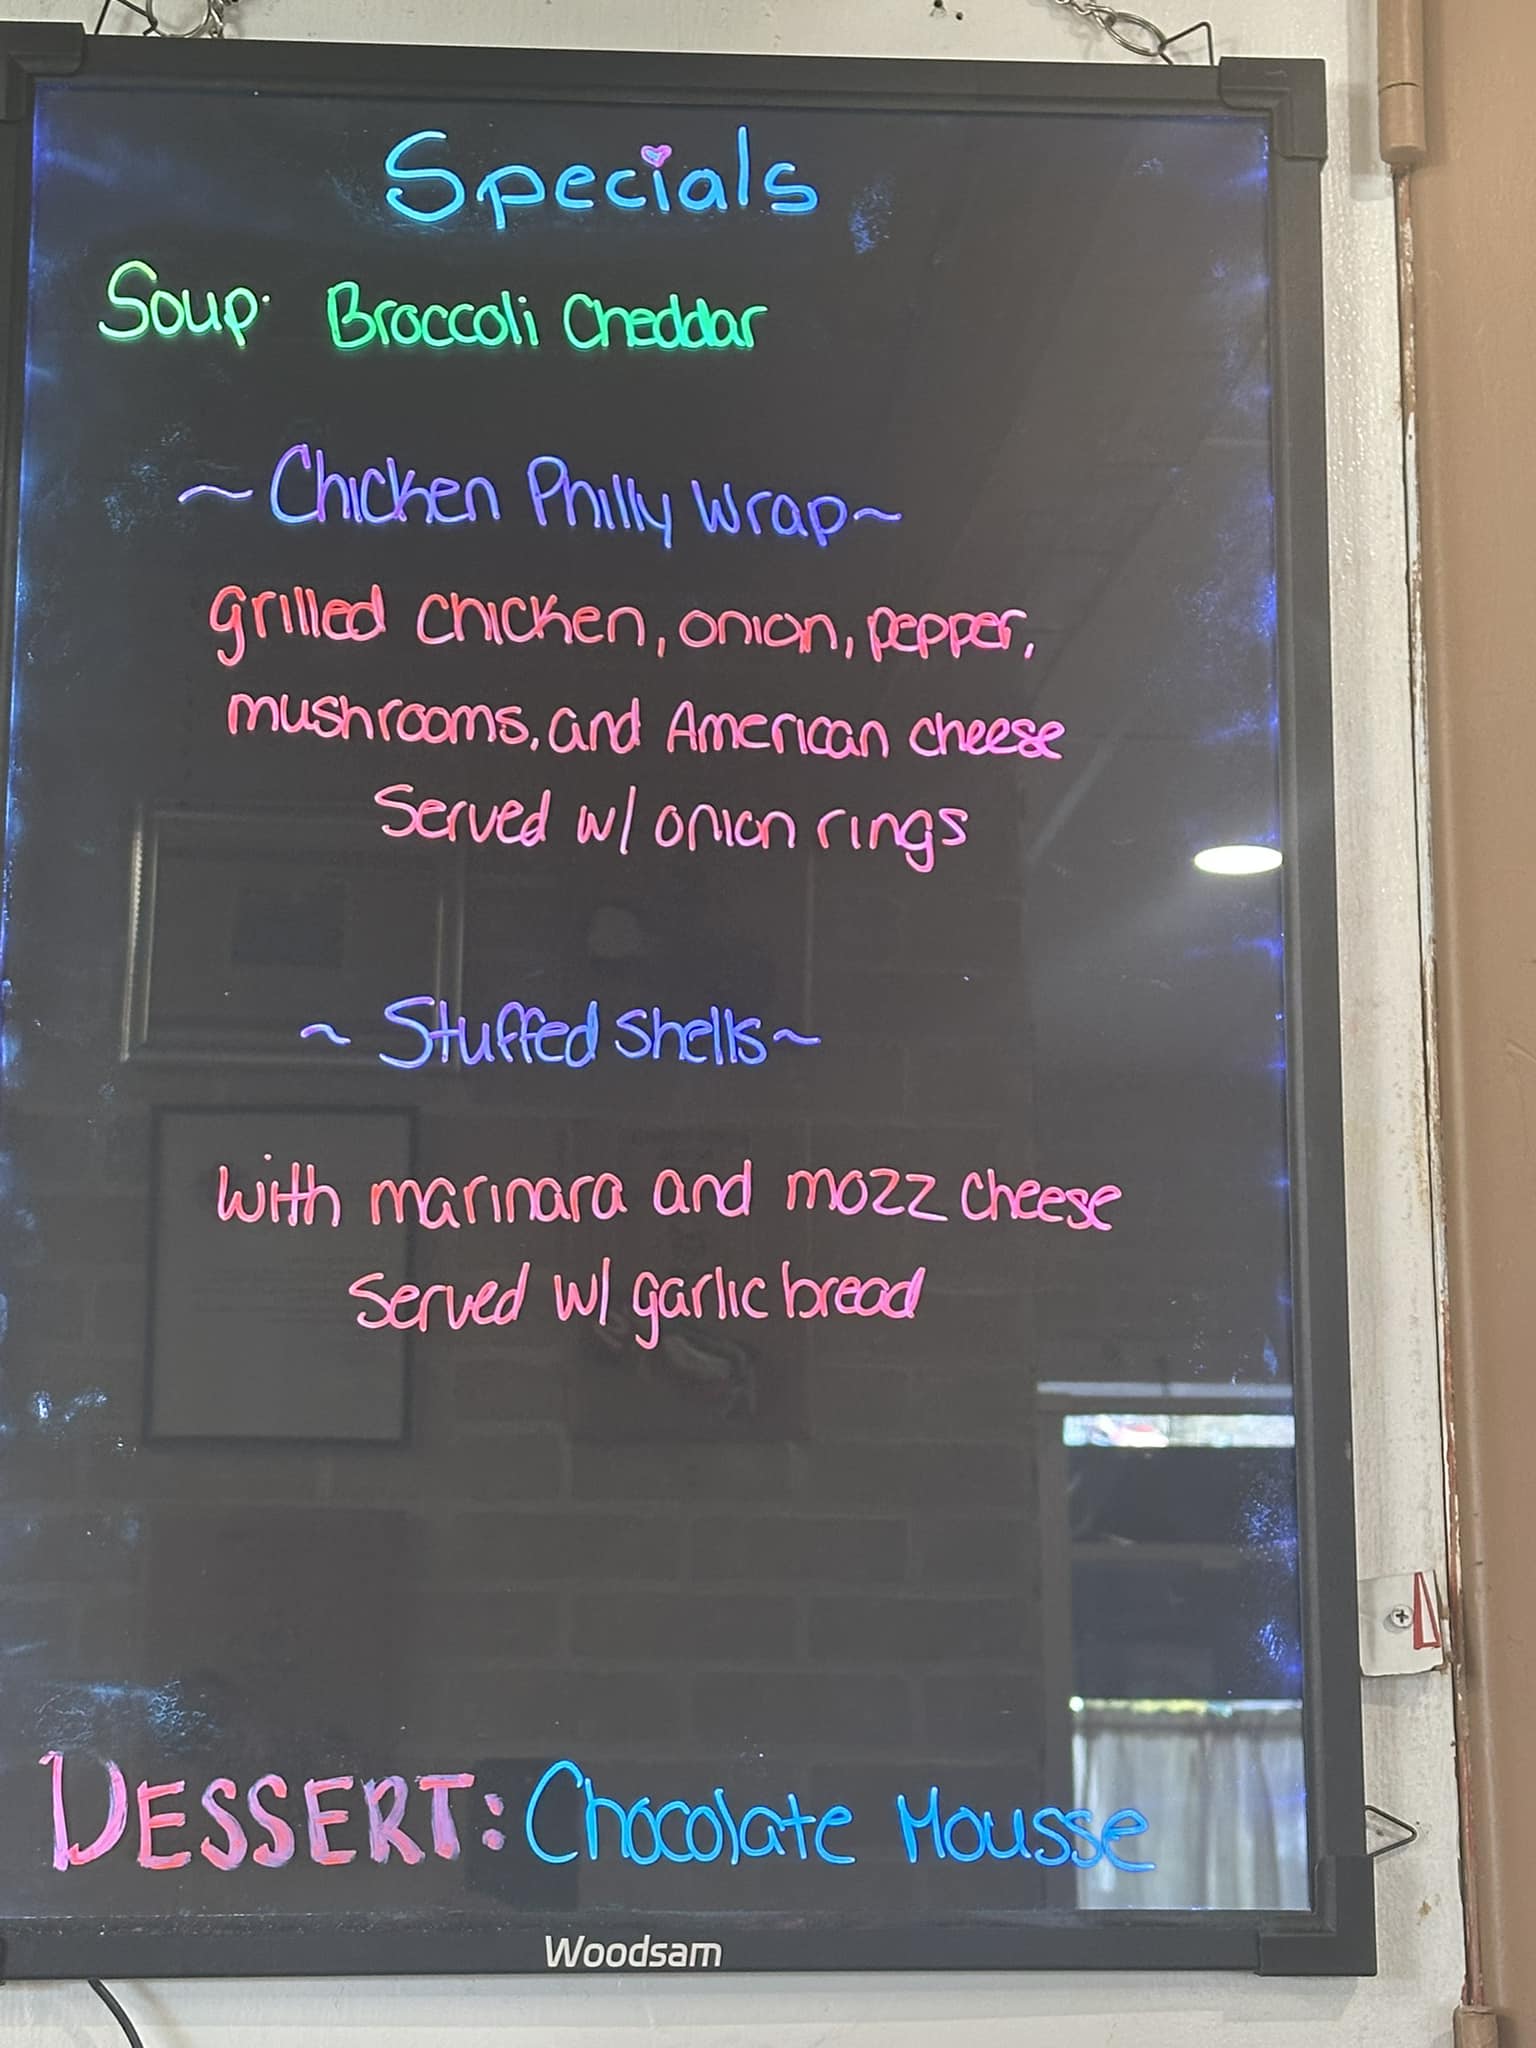 Specials
Soup: Broccoli Cheddar
~Chicken Philly Wrap~
grilled chicken, onion, pepper,
mushrooms, and American cheese
Served w/ onion rings
~Stuffed Shells~
with marinara and mozz cheese
Served w/ garlic bread
DESSERT: Chocolate Mousse
Woodsam